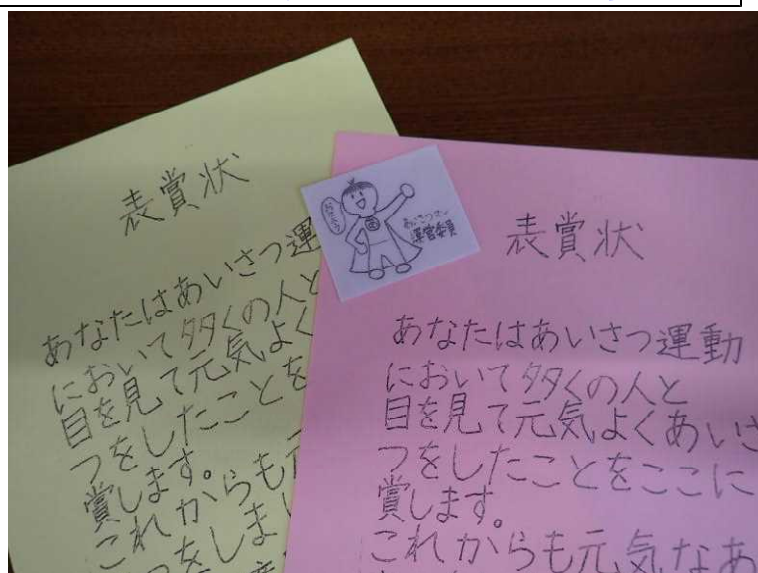 表賞状
あなたはあいさつ運
において多くの人と
目を見て元気よく
つをしたことを
賞します。
これからも元
つをしまし
運営委員
表賞状
あなたはあいさつ運動
において多くの人と
目を見て元気よくあいさ
つをしたことをここに
賞します。
これからも元気なあ